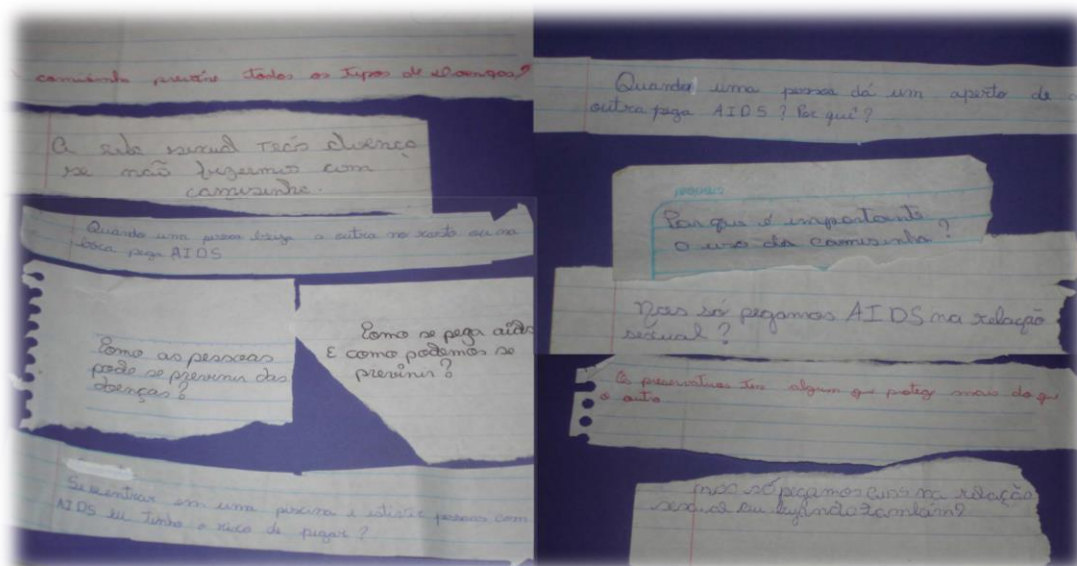 camisinha previne todos os tipos de doenças?
A ato sexual trás doença
se não fizermos com
camisinha.
Quando uma pessoa beija a outra no rosto ou na
boca pega AIDS
Como as pessoas
pode se prevenir das
doenças?
Como se pega aids
E como podemos se
previnir?
Se entrar em uma piscina e estiver pessoas com
AIDS eu tenho o risco de pegar?
Quando uma pessoa dá um aperto de
outra pega AIDS? Por quê?
Por que é importante
o uso da camisinha?
Nos só pegamos AIDS na relação
sexual?
Os preservativos tem algum que proteg mais do que
o outro
nos só pegamos na relação
sexual ou beijando também?